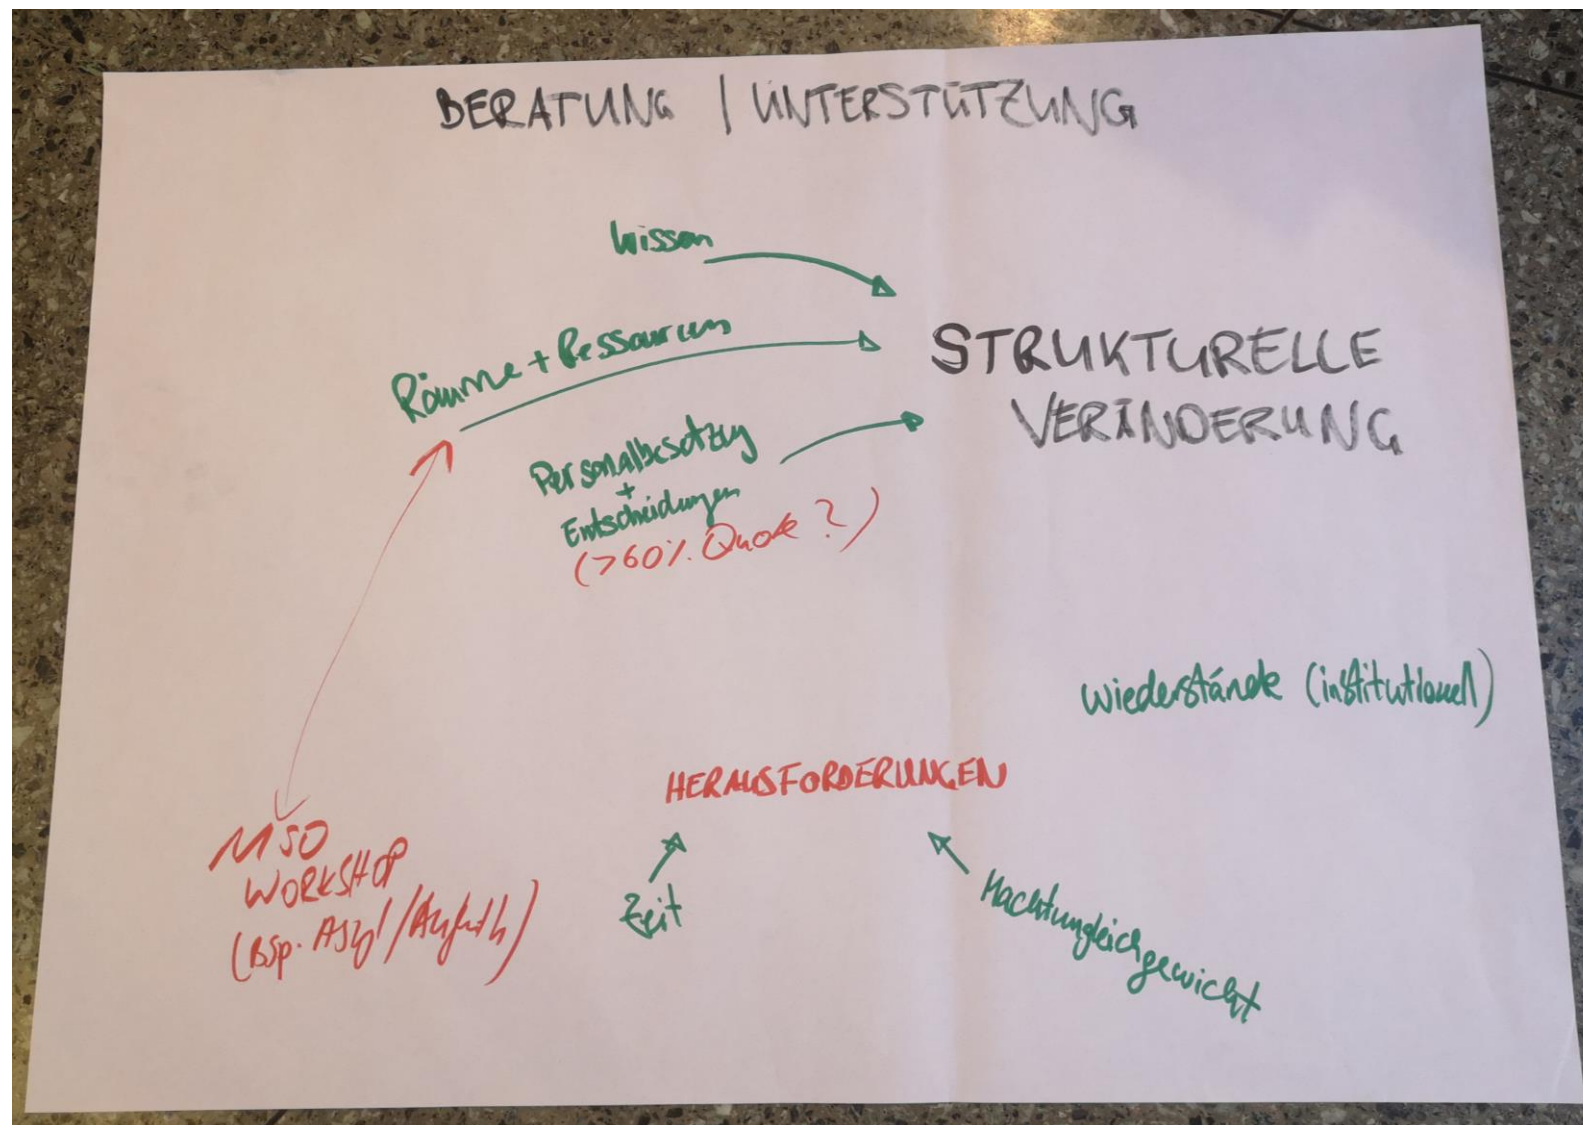 BERATUNG | UNTERSTÜTZUNG
Wissen
Räume + Ressourcen
STRUKTURELLE
VERÄNDERUNG
Personalbesetzung
+
Entscheidungen
(>60% Quote?)
Wiederstände (institutionell)
HERAUSFORDERUNGEN
MSO
WORKSHOP
(Bsp. Asyl/Aufenth)
Zeit
Machtungleichgewicht